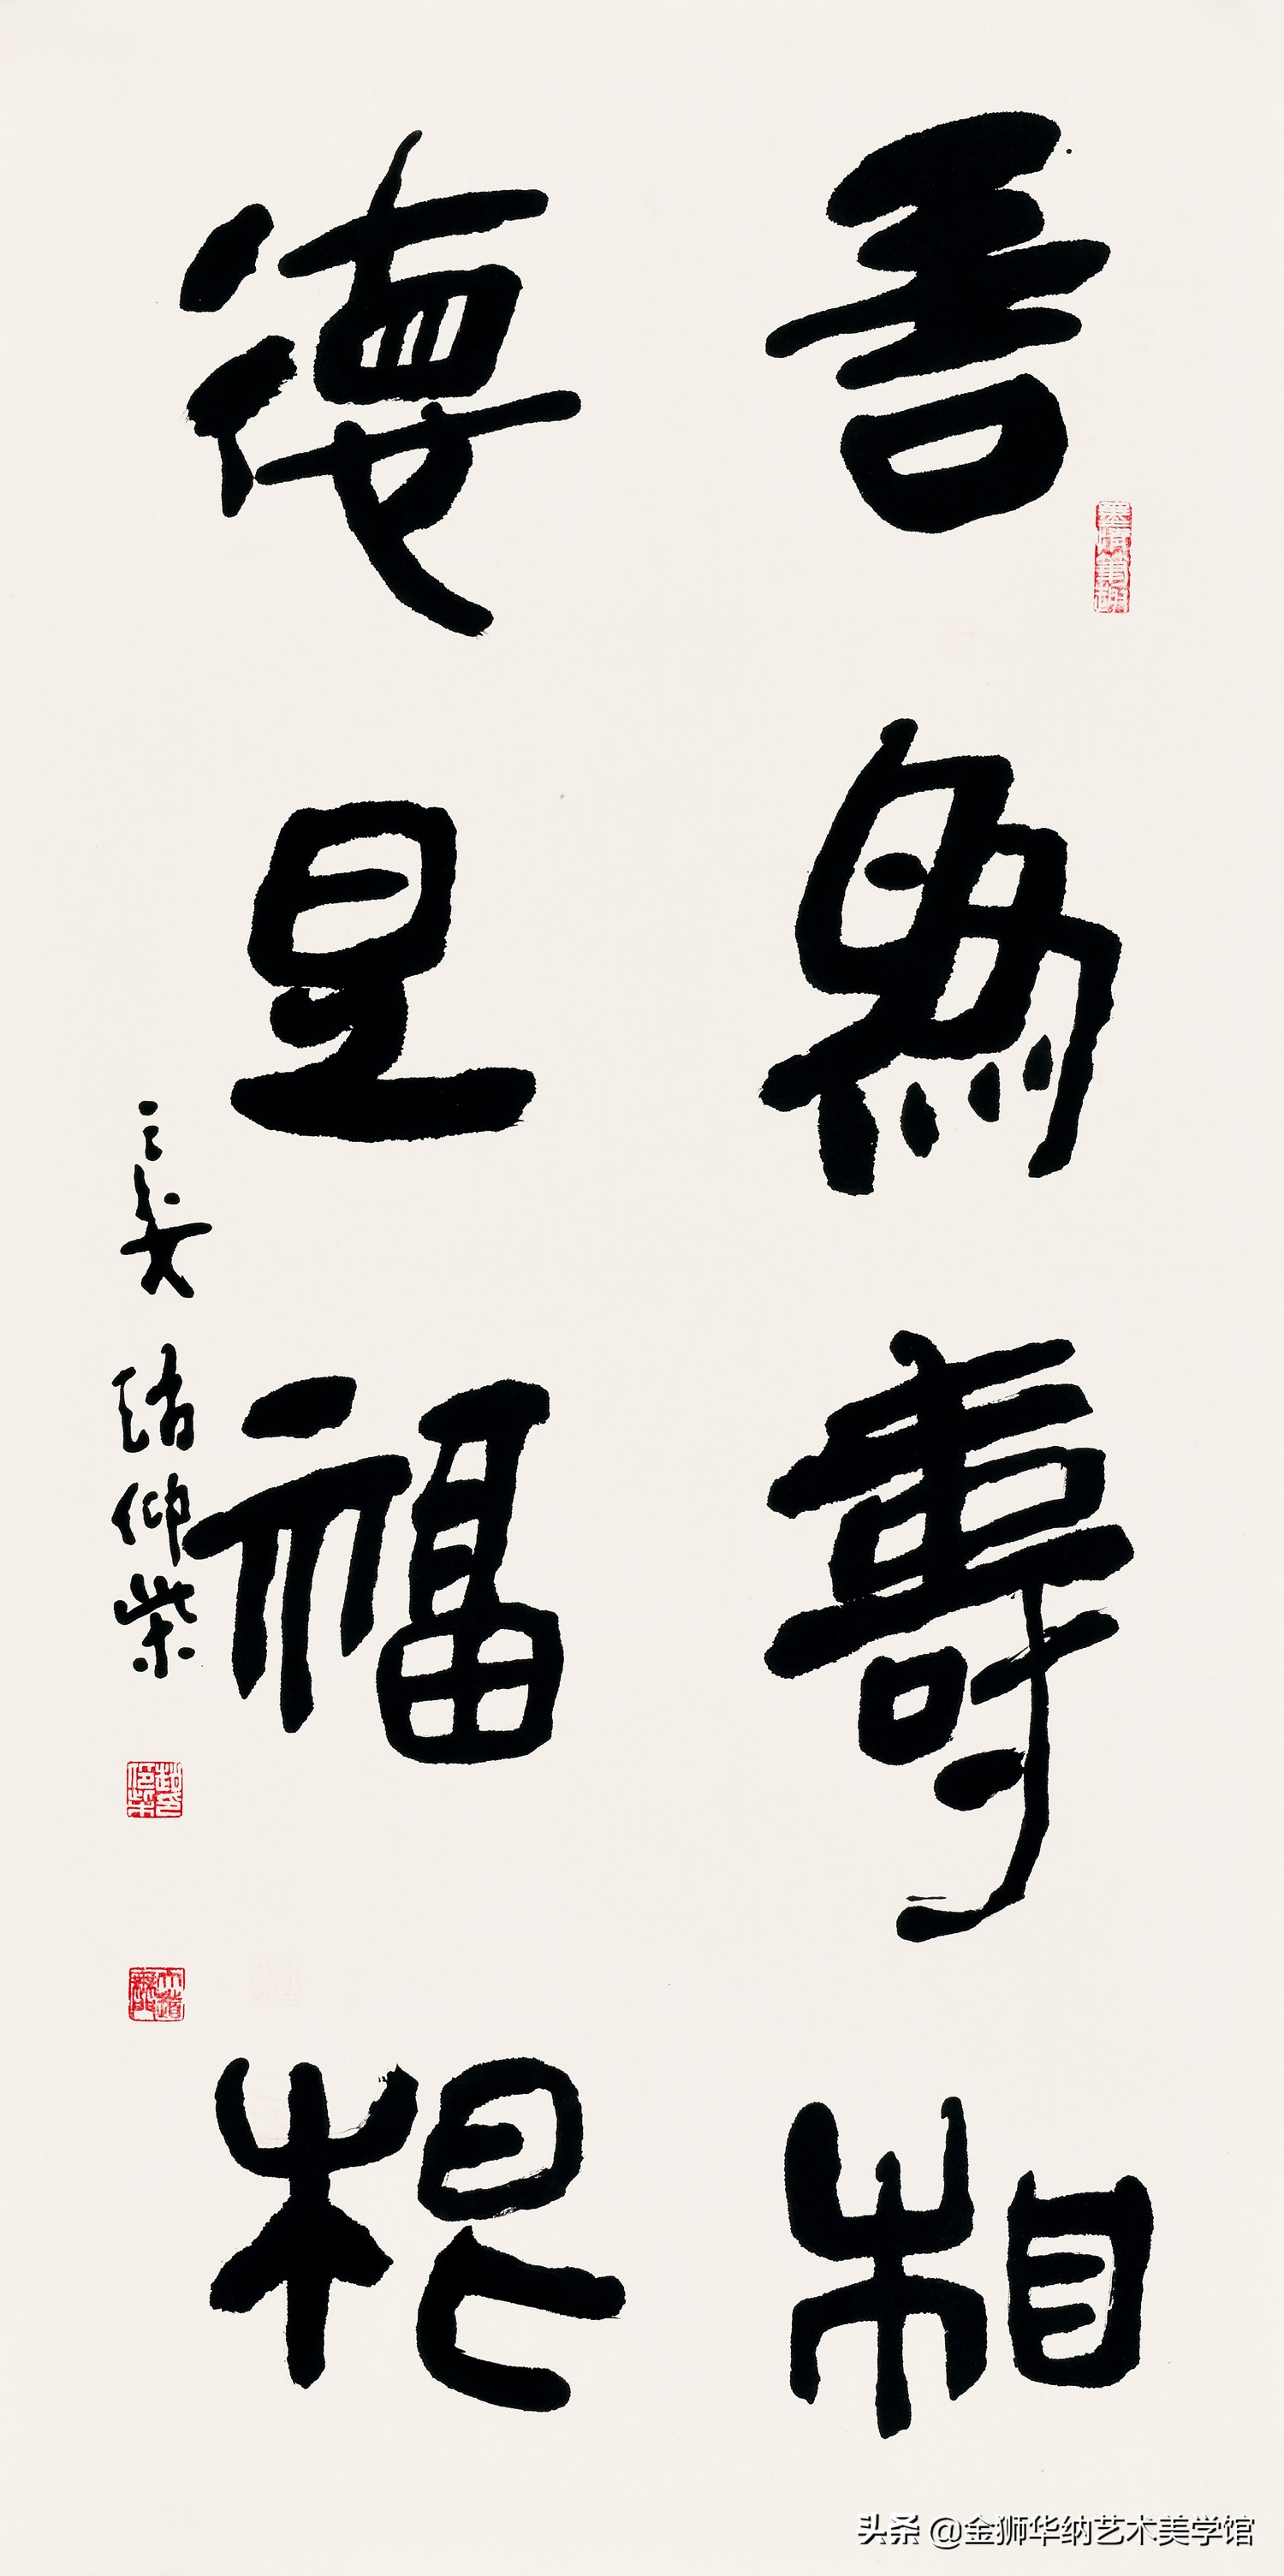 善為壽相
德是福根
仰柴
头条 @金狮华纳艺术美学馆